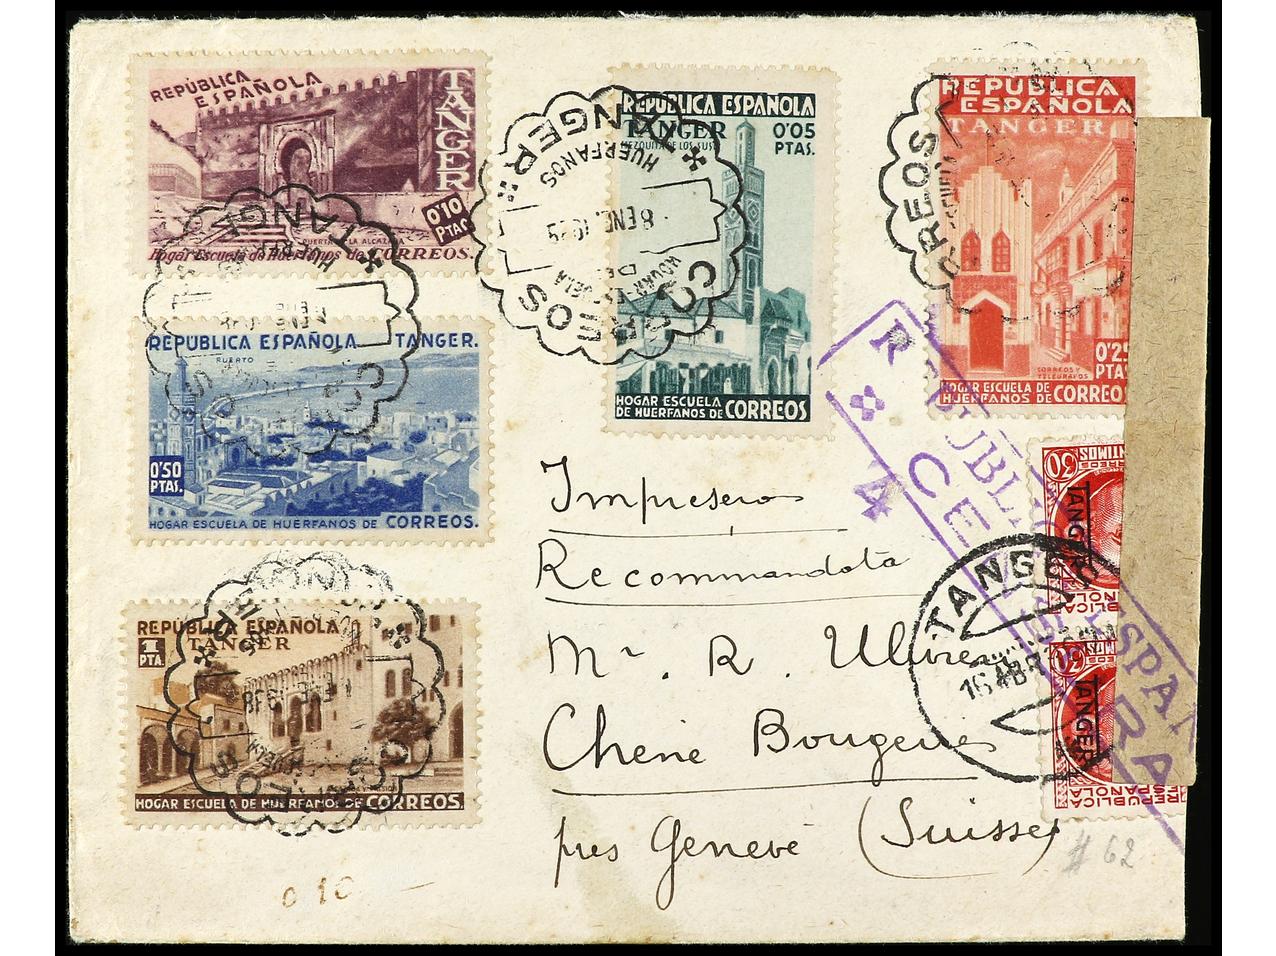 REPÚBLICA
ESPAÑOLA
TANGER
0'10
PTAS.
PUERTA DE LA ALCAZABA
Hogar Escuela de Huérfanos de CORREOS.
REPÚBLICA ESPAÑOLA
TANGER
0'05
PTAS.
MEZQUITA DE LOS SUSI
HOGAR ESCUELA
DE HUERFANOS DE CORREOS
TANGER
HUERFANOS
8 ENE. 1939
CORREOS
REPÚBLICA
ESPAÑOLA
TANGER
0'25
PTAS
CORREOS Y
TELEGRAFOS
HOGAR ESCUELA DE
HUERFANOS DE CORREO
CORREOS
REPÚBLICA ESPAÑOLA TANGER.
PUERTO
0'50
PTAS.
HOGAR ESCUELA DE HUERFANOS DE CORREOS.
REPÚBLICA ESPAÑOLA
TANGER
1
PTA.
HOGAR ESCUELA DE HUERFANOS DE CORREOS.
REPUBLICA ESPAÑ
CENSURA
4
30
TANGER
TANGER
REPUBLICA
ESPAÑOLA
TANGER
16 ABR
Impresero
Recommandata
Mr R.
Chêne Bougeries
près Genève (Suisse)
# 62
0 10